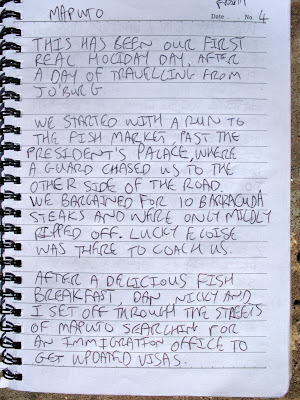 MAPUTO
Date No. 4
THIS HAS BEEN OUR FIRST
REAL HOLIDAY DAY, AFTER
A DAY OF TRAVELLING FROM
JO'BURG
WE STARTED WITH A RUN TO
THE FISH MARKET, PAST THE
PRESIDENT'S PALACE, WHERE
A GUARD CHASED US TO THE
OTHER SIDE OF THE ROAD.
WE BARGAINED FOR 10 BARRACUDA
STEAKS AND WERE ONLY MILDLY
RIPPED OFF. LUCKY ELOISE
WAS THERE TO COACH US.
AFTER A DELICIOUS FISH
BREAKFAST, DAN, NICKY AND
I SET OFF THROUGH THE STREETS
OF MAPUTO SEARCHING FOR
AN IMMIGRATION OFFICE TO
GET UPDATED VISAS.